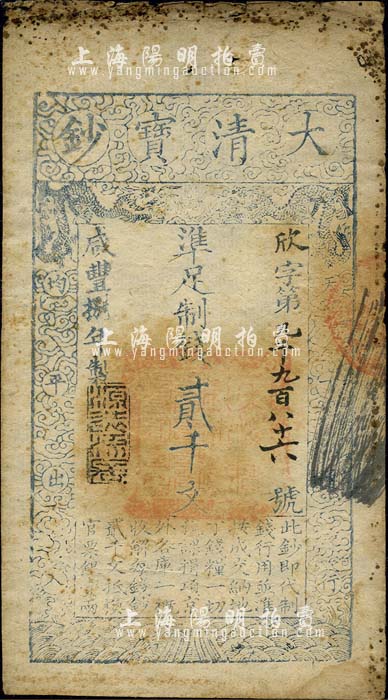 上海陽明拍賣
www.yangmingauction.com
大清寶鈔
欣字第九千九百八十六號
準足制錢貳千文
咸豐捌年製
均平出入
行
此鈔即代制
錢行用並準
按成交納
丁錢糧一切
課捐項京
外各庫
收解每錢鈔
貳千文抵換
官票銀兩
上海陽明拍賣
www.yangmingauction.com
上海陽明拍賣
www.yangmingauction.com